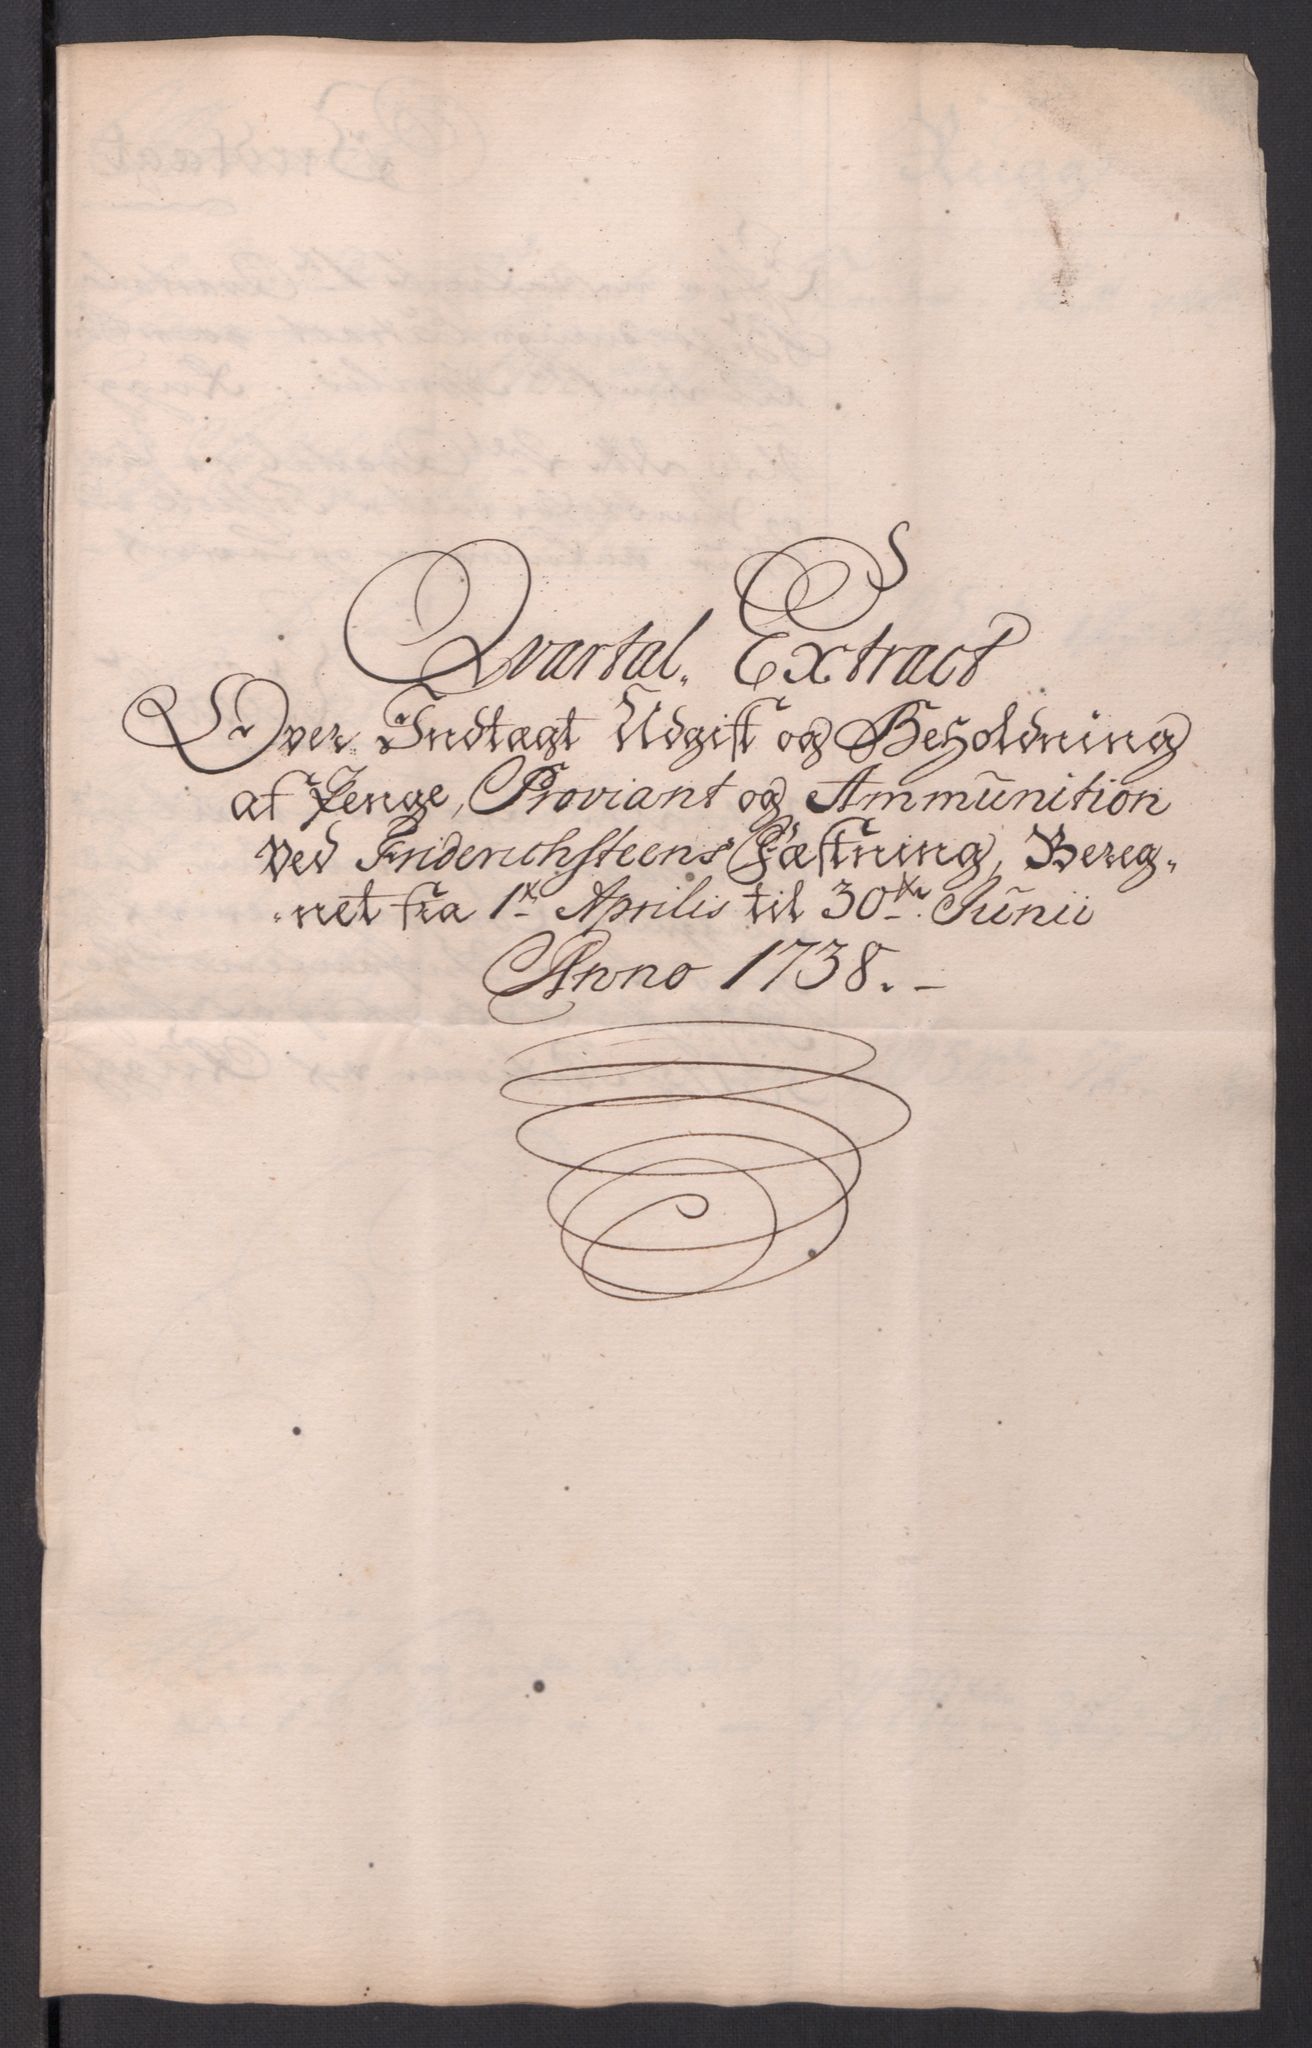 Qvartal. Extract
Over Indtægt Udgift og Beholdning
af Penge, Proviant og Ammunition
Ved Friderichsteens Fæstning, Bereg-
-net fra 1te Aprilis til 30te Junii
Anno 1738.-